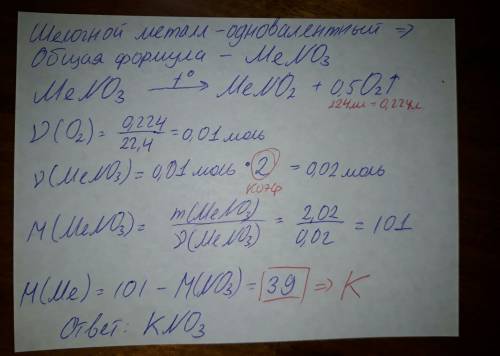 Шелочной металл - одновалентный ⇒
Общая формула - MeNO₃
MeNO₃ —t°→ MeNO₂ + 0,5O₂↑
224мл = 0,224л
ν(O₂) = 0,224/22,4 = 0,01 моль
ν(MeNO₃) = 0,01 моль · 2 = 0,02 моль
коэф
M(MeNO₃) = m(MeNO₃)/ν(MeNO₃) = 2,02/0,02 = 101
M(Me) = 101 - M(NO₃) = 39 ⇒ K
Ответ: KNO₃